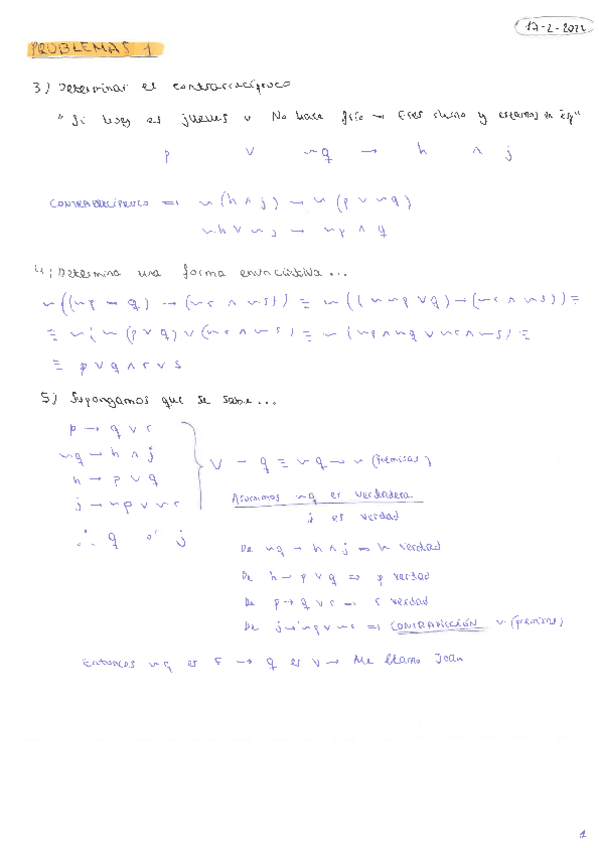 17-2-2022
PROBLEMAS 1
3) Determinar el contrarrecíproco
"Si hoy es jueves v No hace frío → Eres chino y estamos en
p v ~q → h ∧ j
CONTRARRECÍPROCO => ~(h ∧ j) → ~(p v ~q)
~h v ~j → ~p ∧ q
4) Determina una forma enunciativa...
~((~p → q) → (~r ∧ ~s)) ≡ ~((~~p v q) → (~r ∧ ~s)) ≡
≡ ~(~(p v q) v (~r ∧ ~s)) ≡ ~(~p ∧ ~q v ~r ∧ ~s) ≡
≡ p v q ∧ r v s
5) Supongamos que se sabe...
p → q v r
~q → h ∧ j
h → p v q
j → ~p v ~r
∴ q ó j
V → q ≡ ~q → ~(Premisas)
Asumimos ~q es verdadera
j es verdad
De ~q → h ∧ j => h verdad
De h → p v q => p verdad
De p → q v r => r verdad
De j → ~p v ~r => CONTRADICCIÓN ~(premisas)
Entonces ~q es F → q es V → Me llamo Joan
1